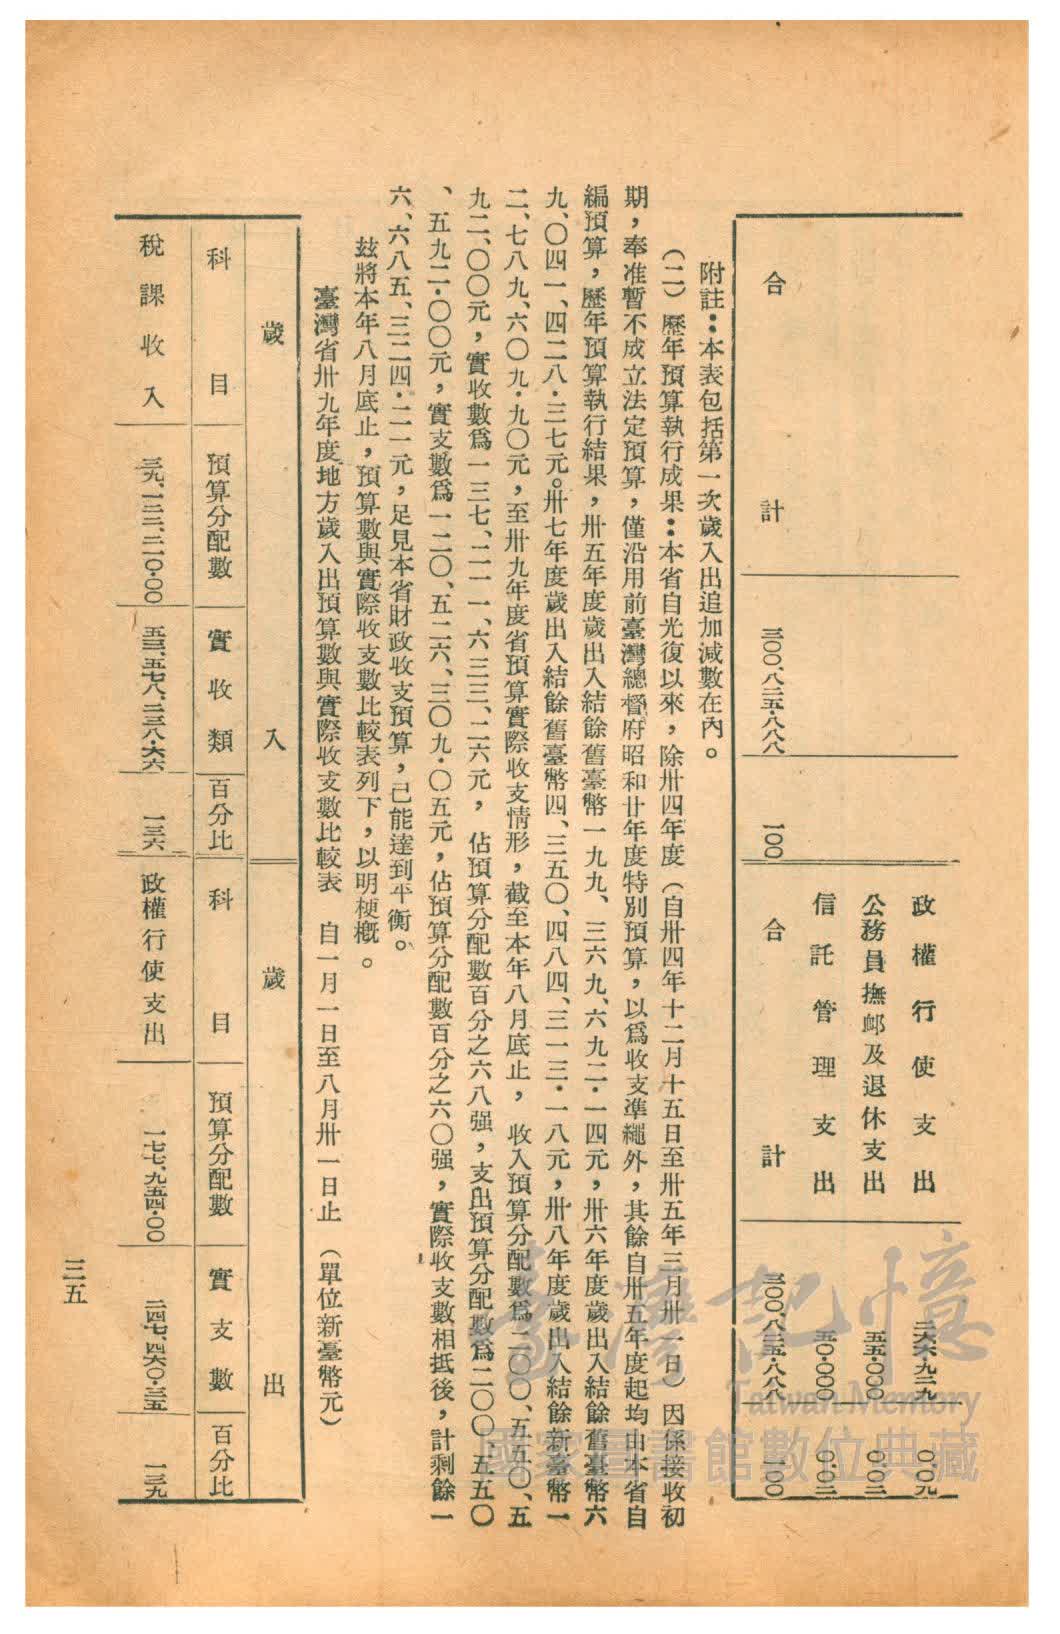 政權行使支出 二六六、九三九 〇・〇九
公務員撫卹及退休支出 五五・〇〇〇 〇・〇二
信託管理支出 五〇・〇〇〇 〇・〇二
合計 三〇〇、八三五・八八八 一〇〇 合計 三〇〇、八三五・八八八 一〇〇
附註：本表包括第一次歲入出追加減數在內。
（二）歷年預算執行成果：本省自光復以來，除卅四年度（自卅四年十二月十五日至卅五年三月卅一日）因係接收初
期，奉准暫不成立法定預算，僅沿用前臺灣總督府昭和廿年度特別預算，以爲收支準繩外，其餘自卅五年度起均由本省自
編預算，歷年預算執行結果，卅五年度歲出入結餘舊臺幣一九九、三六九、六九二・一四元，卅六年度歲出入結餘舊臺幣六
九、〇四一、四二八・三七元。卅七年度歲出入結餘舊臺幣四、三五〇、四八四、三一三・一八元，卅八年度歲出入結餘新臺幣一
二、七八九、六〇九・九〇元，至卅九年度省預算實際收支情形，截至本年八月底止，收入預算分配數爲二〇〇、五五〇、五
九二、〇〇元，實收數爲一三七、二一一、六三三、二六元，佔預算分配數百分之六八强，支出預算分配數爲二〇〇、五五〇
、五九二・〇〇元，實支數爲一二〇、五二六、三〇九・〇五元，佔預算分配數百分之六〇强，實際收支數相抵後，計剩餘一
六、六八五、三二四・二一元，足見本省財政收支預算，已能達到平衡。
玆將本年八月底止，預算數與實際收支數比較表列下，以明梗概。
臺灣省卅九年度地方歲入出預算數與實際收支數比較表 自一月一日至八月卅一日止 （單位新臺幣元）
歲入 歲出
科目 預算分配數 實收類 百分比 科目 預算分配數 實支數 百分比
稅課收入 三九、一三三、二一〇・〇〇 五三、五七八、二三八・六六 一三六 政權行使支出 一七七、九五四・〇〇 二四七、四六〇・三五 一三九
三五
臺灣記憶
Taiwan Memory
國家圖書館數位典藏